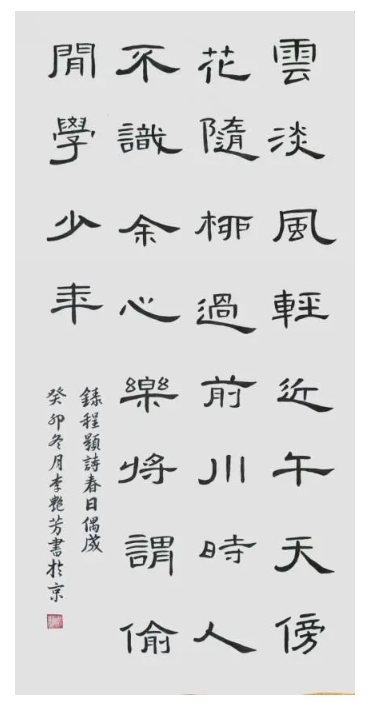 雲淡風輕近午天傍
花隨柳過前川時人
不識余心樂將謂偷
閒學少年
錄程顥詩春日偶成
癸卯冬月李艷芳書於京